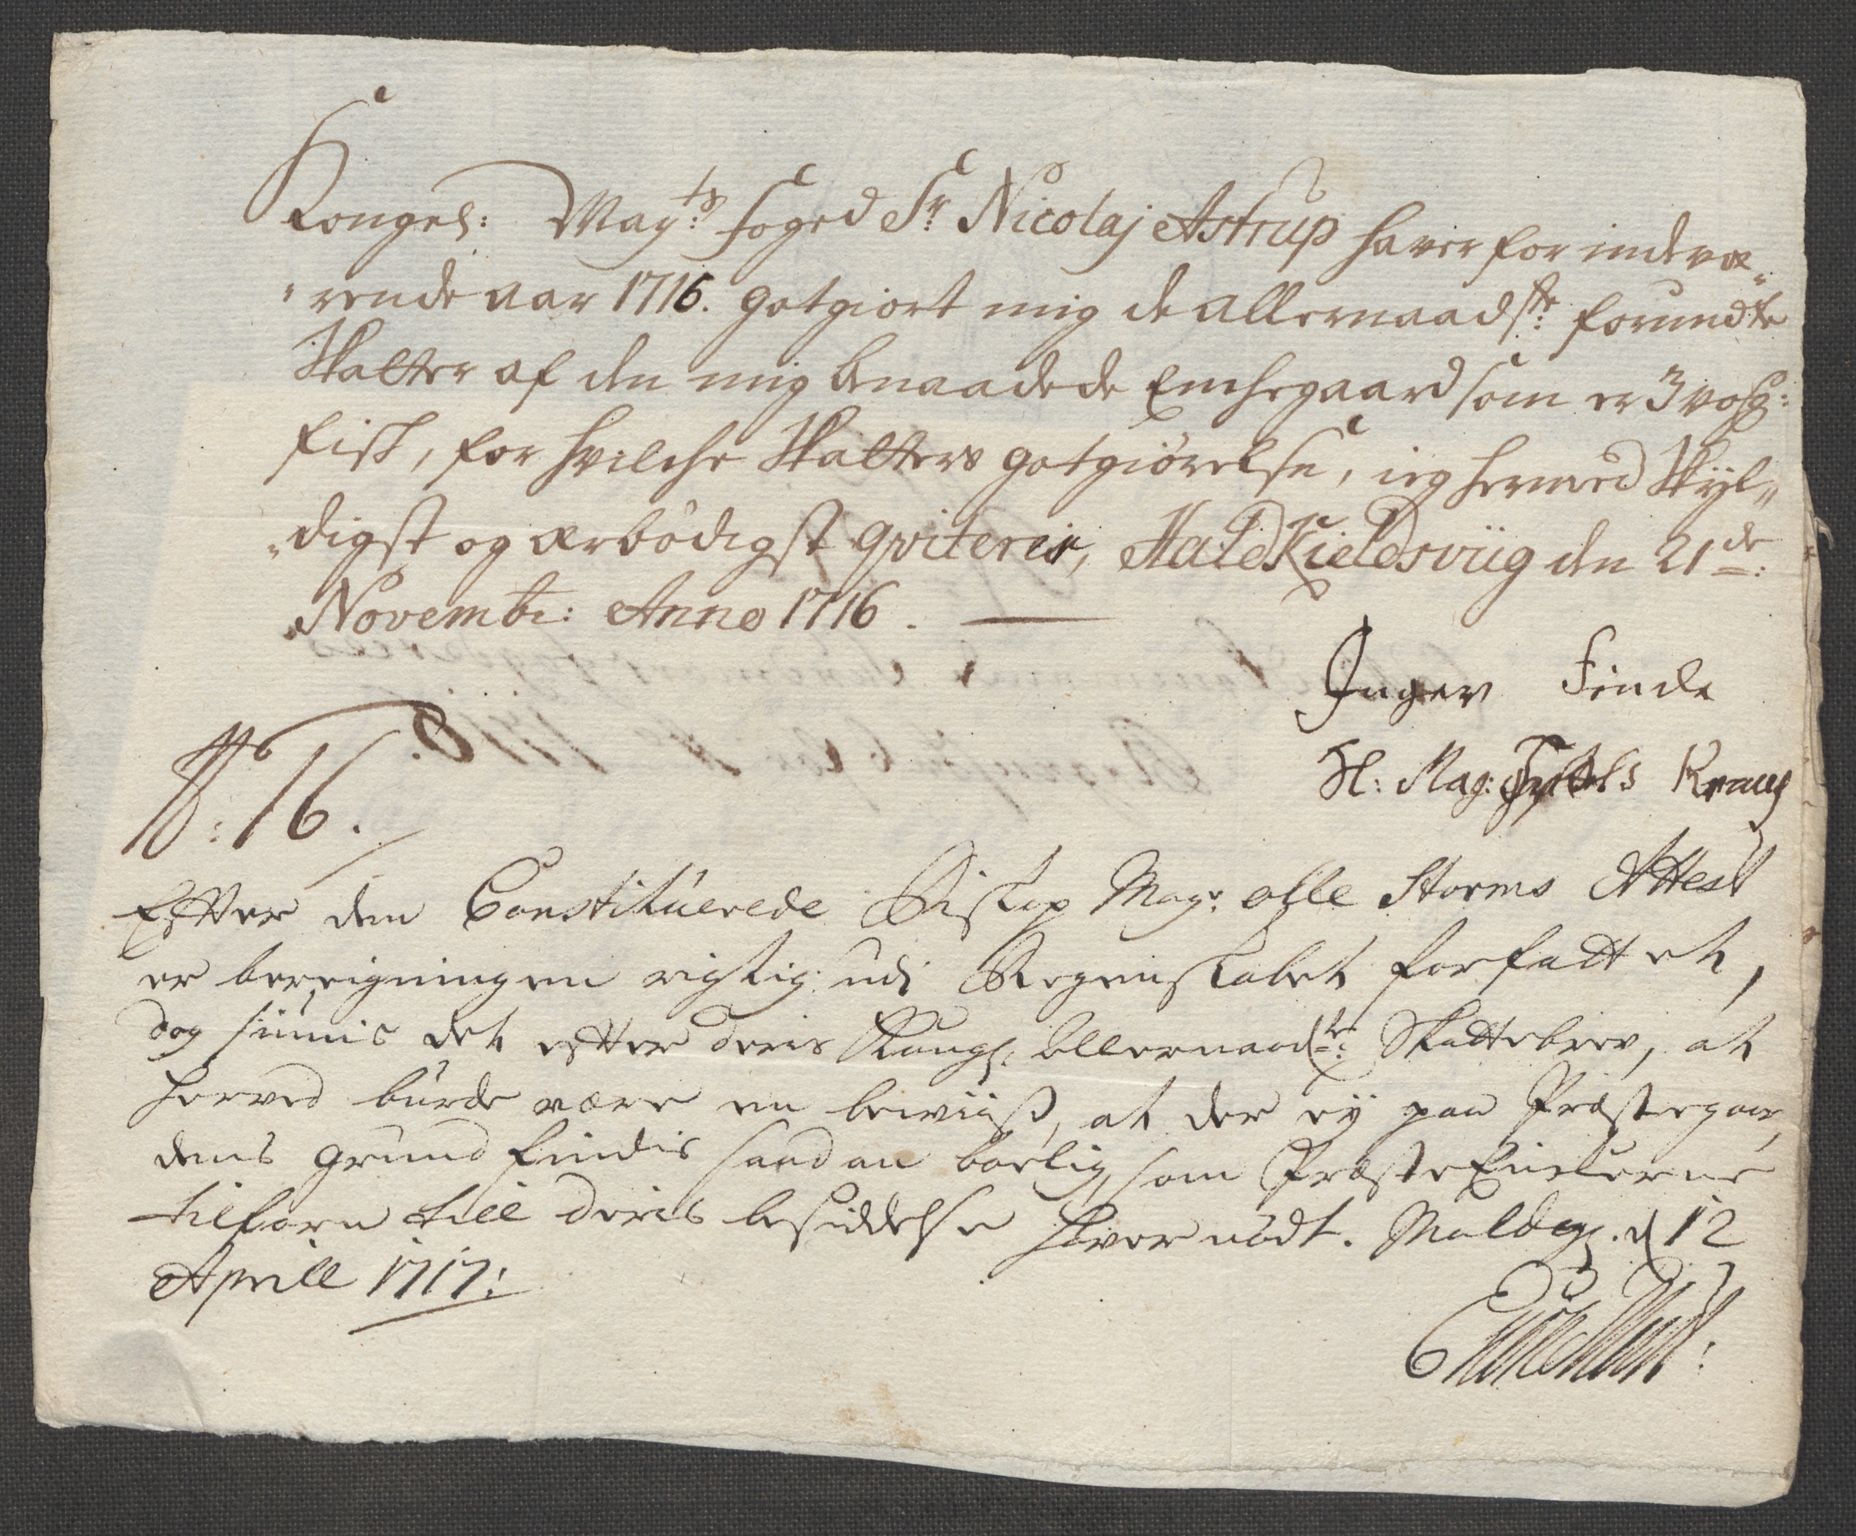 Kongel: Mayts: foged Sr Nicolaj Astrup haver for indevæ„
„rende aar 1716. gotgiort mig de allernaadste: forundte
Skatter af den mig benaadede Enchegaard som er 3 vog:
fisk, for hvilche Skatters gotgiörelse, ieg hermed Skyl„
„digst og ærbödigst qviterer, HaldsKieldsviig den 21de:
Novembr: Anno 1716.
Inger Finde
Sl: Mag: Krag
No: 16.
Efter den Constituerede Biskop Magr: Olle Storms Attest
er bereigningen rigtig udi Regenskabet forfattet,
dog siunis det efter deris Kongl: Allernaadste: Skattebrev, at
herved burde være en beviiss, at der ey paa Præstegaar„
dens grund findis saadan boelig, som PræsteEnkerne
tilforn till deris besiddelse haver nødt. Molde d 12
Aprill 1717: